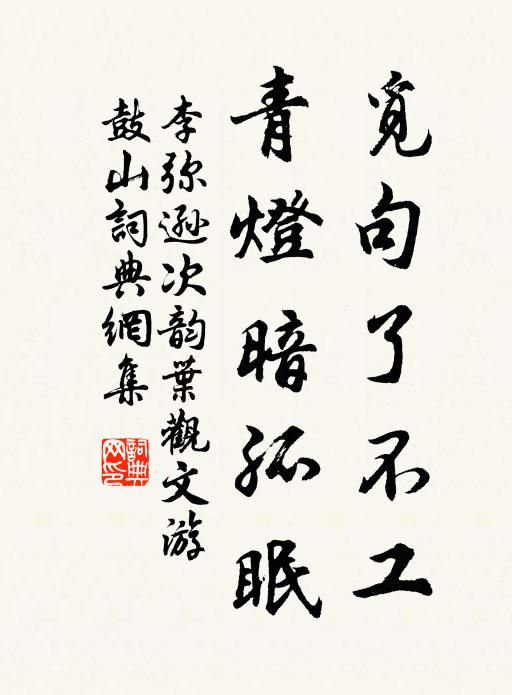 覓句了不工
青燈暗孤眠
李弥遜次韵葉觀文游
鼓山詞典網集
詞典
网印